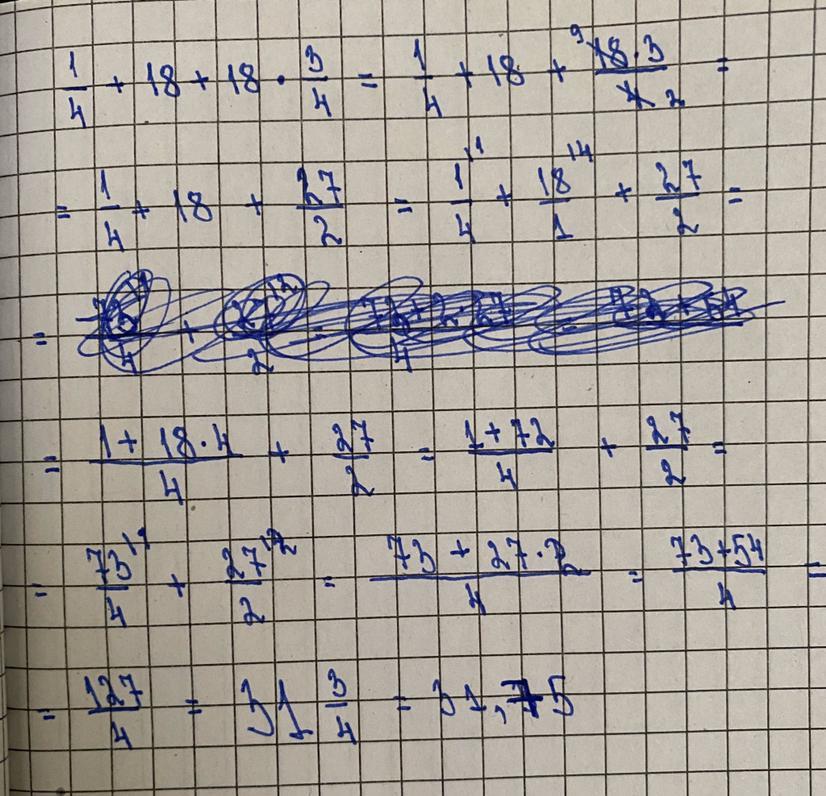 1/4 + 18 + 18 · 3/4 = 1/4 + 18 + 9 18·3/4 2 =
= 1/4 + 18 + 27/2 = 1/4 \1 + 18/1 \4 + 27/2 =
= 1+18·4/4 + 27/2 = 1+72/4 + 27/2 =
= 73/4 \1 + 27/2 \2 = 73+27·2/4 = 73+54/4 =
= 127/4 = 31 3/4 = 31,75